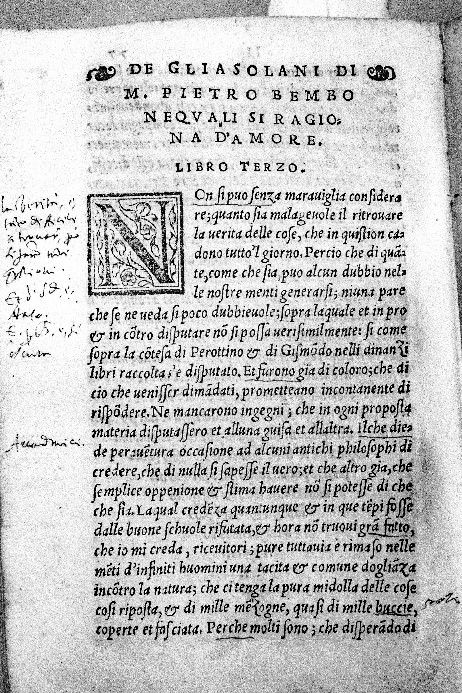 DE GLIASOLANI DI
M. PIETRO BEMBO
NEQVALI SI RAGIO:
NA D'AMORE.
LIBRO TERZO.
NOn si puo senza marauiglia considera
re; quanto sia malageuole il ritrouare
la uerita delle cose, che in quistion ca
dono tutto'l giorno. Percio che di quãte,
come che sia, puo alcun dubbio nel-
le nostre menti generarsi; niuna pare
che se ne ueda si poco dubbieuole; sopra laquale et in pro
& in cõtro disputare nõ si possa uerisimilmente: si come
sopra la cõtesa di Perottino & di Gismõdo nelli dinanzi
libri raccolta, e disputato. Et furono gia di coloro; che di
cio che uenisser dimãdati, prometteano incontanente di
rispõdere. Ne mancarono ingegni; che in ogni proposta
materia disputassero et alluna guisa et allaltra. Ilche die-
de perauẽtura occasione ad alcuni antichi philosophi di
credere, che di nulla si sapesse il uero; et che altro gia, che
semplice oppenione & stima hauere nõ si potesse di che
che sia. Laqual credẽza quantunque & in que tẽpi fosse
dalle buone schuole rifiutata, & hora nõ truoui grã fatto,
che io mi creda, riceuitori; pure tuttauia e rimaso nelle
mẽti d'infiniti huomini una tacita & comune dogliãza
incõtro la natura; che ci tenga la pura midolla delle cose
cosi riposta, & di mille mẽzogne, quasi di mille buccie,
coperte et fasciata. Perche molti sono; che disperãdo di
Academici.